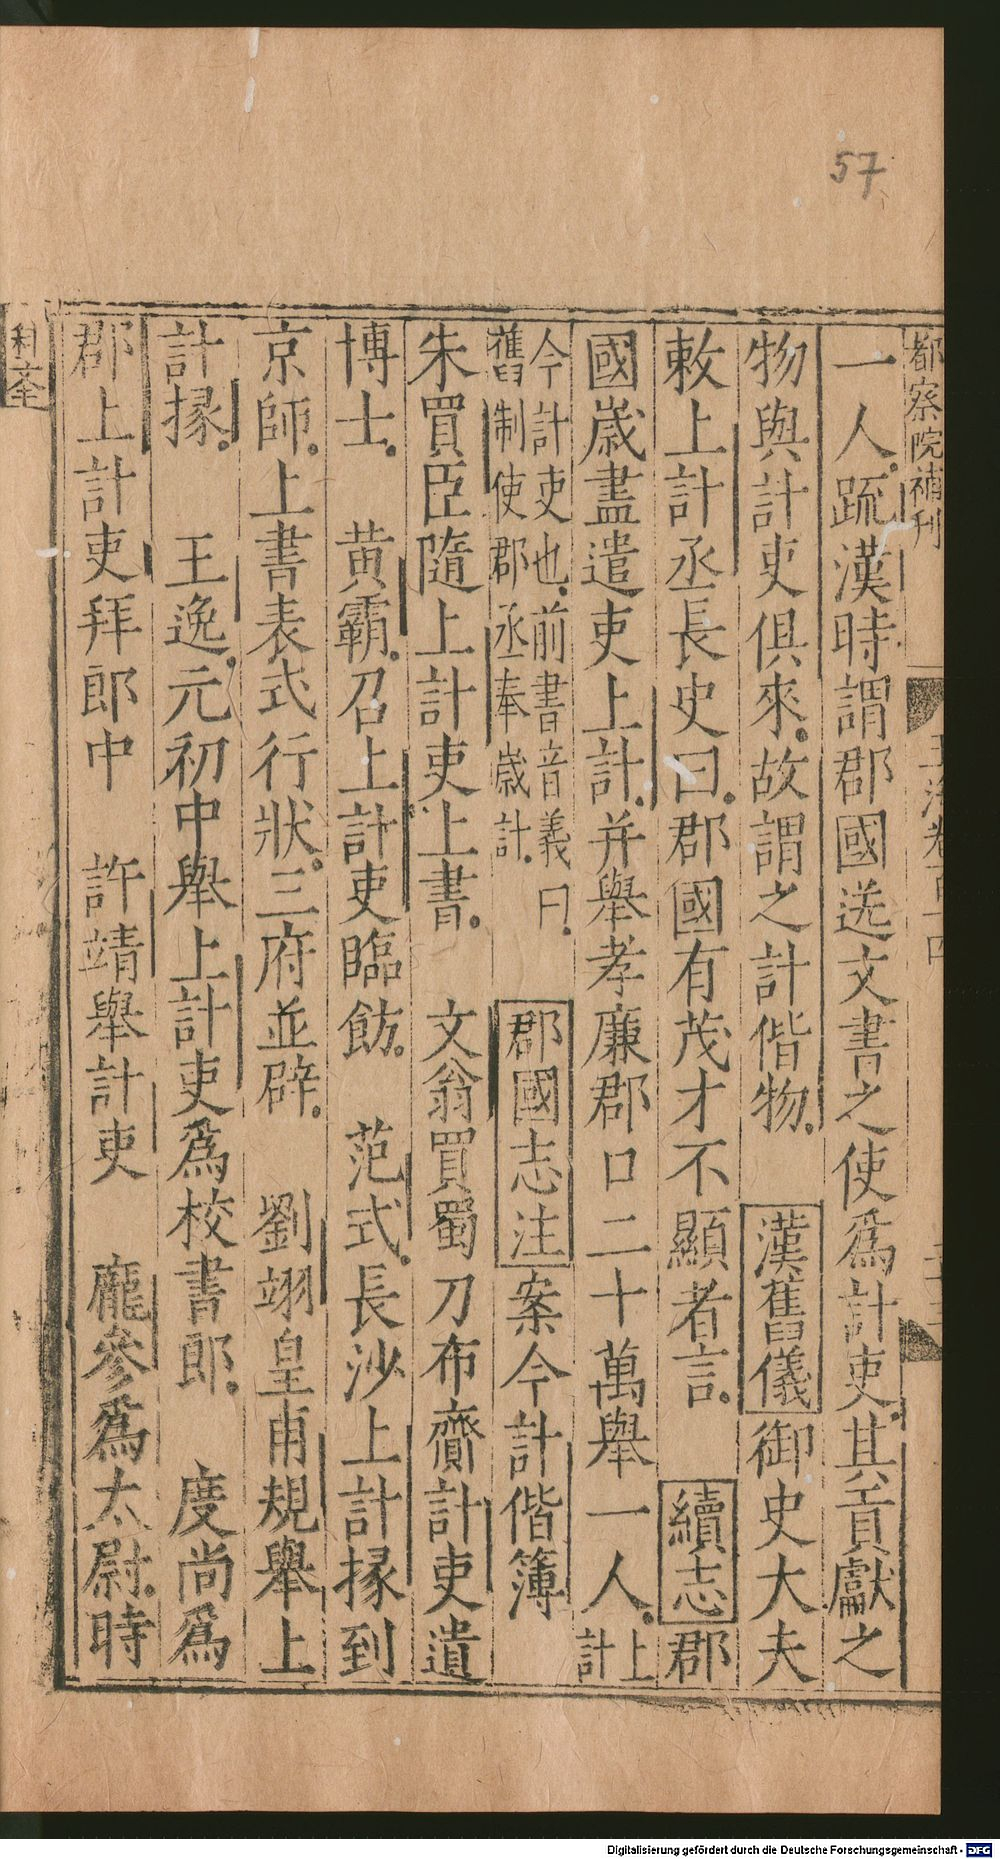 57
都察院補刊
玉海卷百十四
一人疏漢時謂郡國送文書之使爲計吏其貢獻之
物與計吏俱來故謂之計偕物 漢舊儀御史大夫
敕上計丞長史曰郡國有茂才不顯者言 續志郡
國歲盡遣吏上計并舉孝廉郡口二十萬舉一人上計
今計吏也前書音義曰
舊制使郡丞奉歲計
郡國志注案今計偕簿
朱買臣隨上計吏上書 文翁買蜀刀布齎計吏遺
博士 黄霸召上計吏臨飭 范式長沙上計掾到
京師上書表式行狀三府並辟 劉翊皇甫規舉上
計掾 王逸元初中舉上計吏爲校書郎 度尚爲
郡上計吏拜郎中 許靖舉計吏 龐參爲太尉時
Digitalisierung gefördert durch die Deutsche Forschungsgemeinschaft - DFG